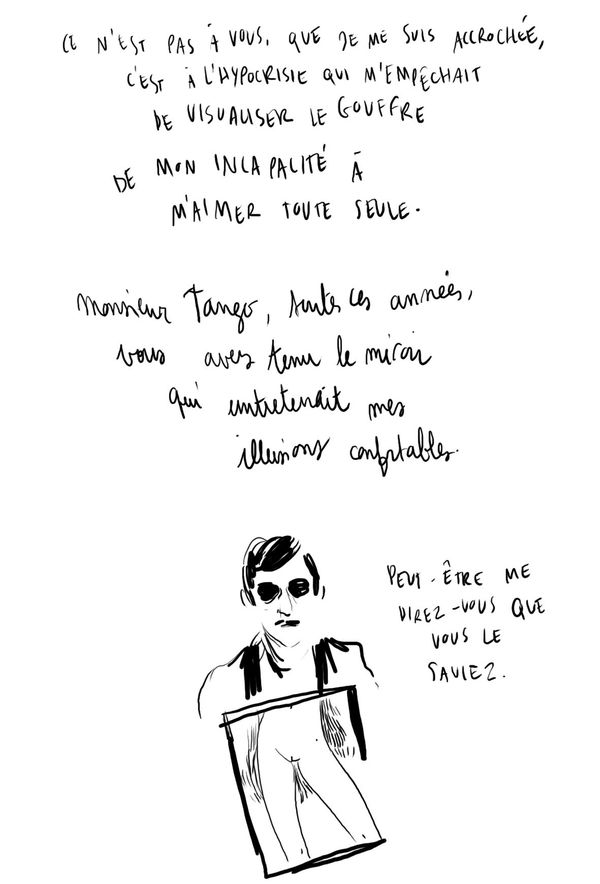 CE N'EST PAS À VOUS, QUE JE ME SUIS ACCROCHÉE,
C'EST À L'HYPOCRISIE QUI M'EMPÊCHAIT
DE VISUALISER LE GOUFFRE
DE MON INCAPACITÉ À
M'AIMER TOUTE SEULE.
Monsieur Tango, toutes ces années,
vous avez tenu le miroir
qui entretenait mes
illusions confortables.
PEUT-ÊTRE ME
DIREZ-VOUS QUE
VOUS LE
SAVIEZ.